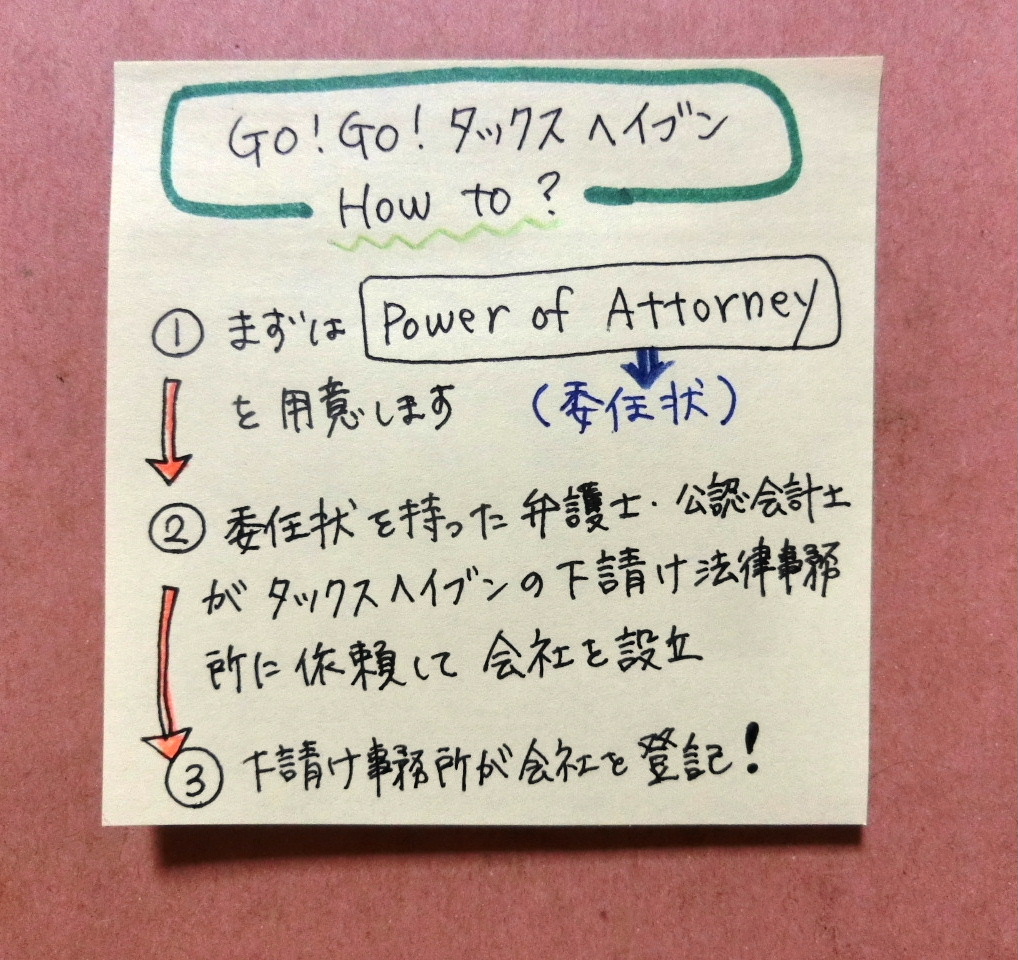 Go!Go!タックスヘイブン
How to?
① まずは Power of Attorney
を用意します (委任状)
② 委任状を持った弁護士・公認会計士
がタックスヘイブンの下請け法律事務
所に依頼して会社を設立
③ 下請け事務所が会社を登記!